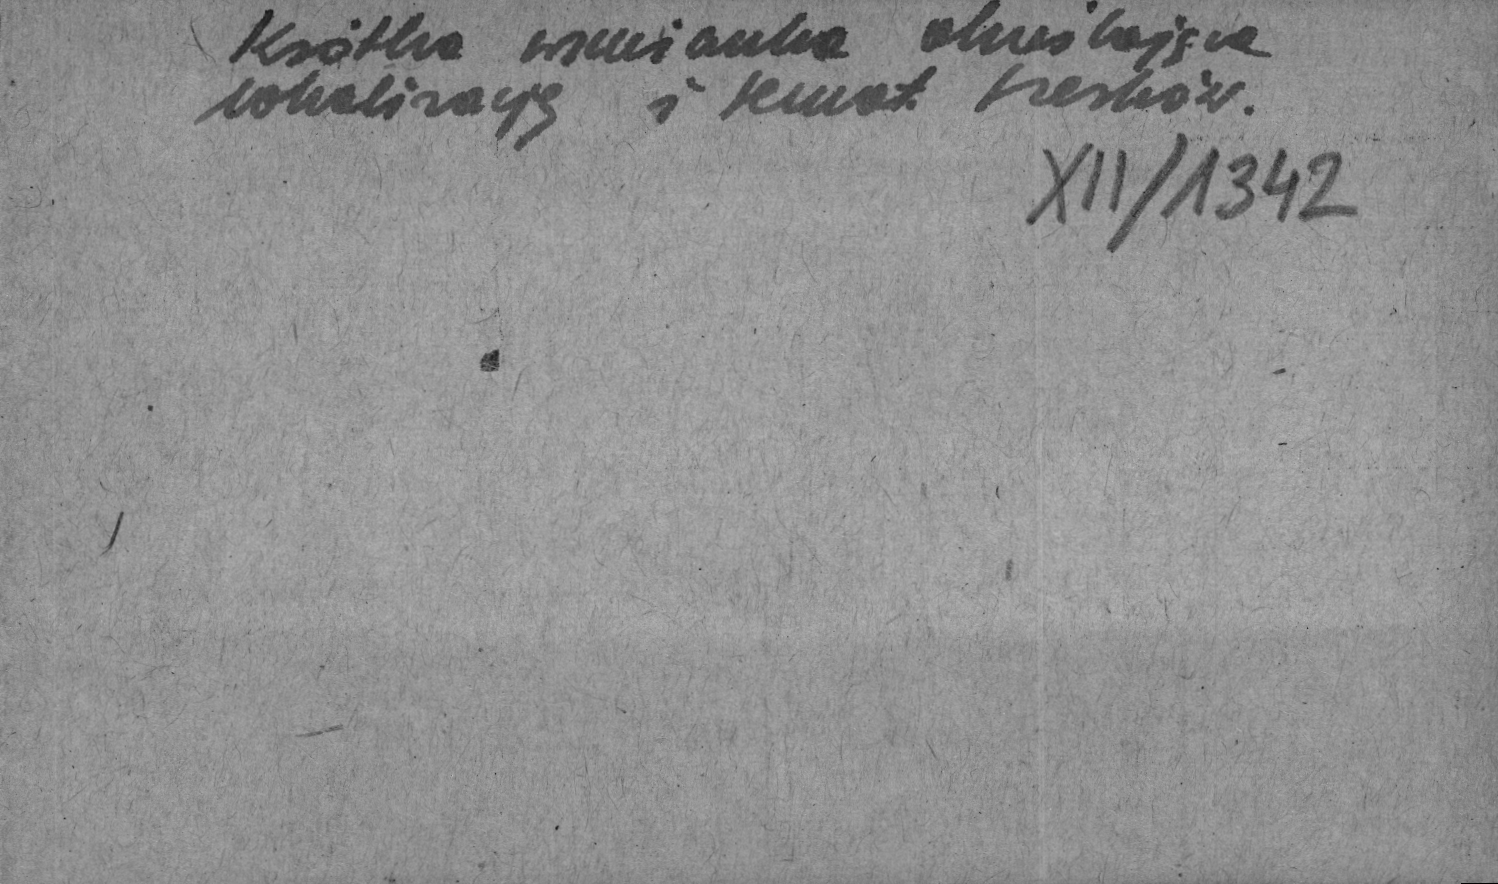 Krótka wzmianka określająca
lokalizację i temat fresków.
XII/1342